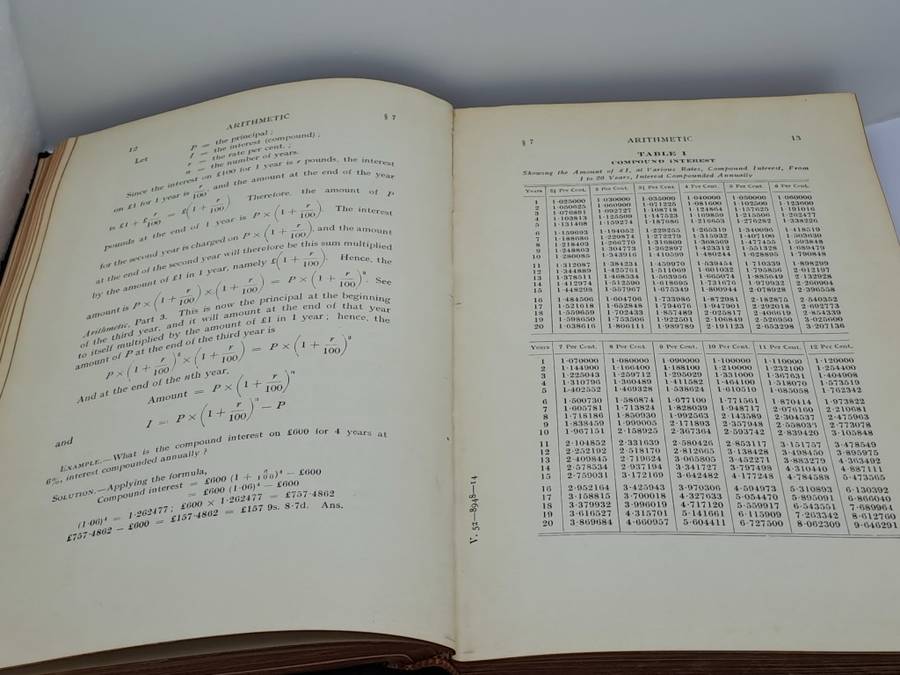 12 ARITHMETIC § 7
Let P = the principal;
I = the interest (compound);
r = the rate per cent.;
n = the number of years.
Since the interest on £100 for 1 year is r pounds, the interest
on £1 for 1 year is r/100 and the amount at the end of the year
is £1 + £r/100 = £(1 + r/100) Therefore, the amount of P
pounds at the end of 1 year is P × (1 + r/100). The interest
for the second year is charged on P × (1 + r/100), and the amount
at the end of the second year will therefore be this sum multiplied
by the amount of £1 in 1 year, namely £(1 + r/100). Hence, the
amount is P × (1 + r/100) × (1 + r/100) = P × (1 + r/100)² See
Arithmetic, Part 3. This is now the principal at the beginning
of the third year, and it will amount at the end of that year
to itself multiplied by the amount of £1 in 1 year; hence, the
amount of P at the end of the third year is
P × (1 + r/100)² × (1 + r/100) = P × (1 + r/100)³
And at the end of the nth year,
Amount = P × (1 + r/100)ⁿ
and I = P × (1 + r/100)ⁿ − P
EXAMPLE.—What is the compound interest on £600 for 4 years at
6%, interest compounded annually?
SOLUTION.—Applying the formula,
Compound interest = £600 (1 + 6/100)⁴ − £600
= £600 (1·06)⁴ − £600
(1·06)⁴ = 1·262477; £600 × 1·262477 = £757·4862
£757·4862 − £600 = £157·4862 = £157 9s. 8·7d. Ans.
§ 7 ARITHMETIC 13
TABLE I
COMPOUND INTEREST
Showing the Amount of £1, at Various Rates, Compound Interest, From
1 to 20 Years, Interest Compounded Annually
Years 2½ Per Cent. 3 Per Cent. 3½ Per Cent. 4 Per Cent. 5 Per Cent. 6 Per Cent.
1 1·025000 1·030000 1·035000 1·040000 1·050000 1·060000
2 1·050625 1·060900 1·071225 1·081600 1·102500 1·123600
3 1·076891 1·092727 1·108718 1·124864 1·157625 1·191016
4 1·103813 1·125509 1·147523 1·169859 1·215506 1·262477
5 1·131408 1·159274 1·187686 1·216653 1·276282 1·338226
6 1·159693 1·194052 1·229255 1·265319 1·340096 1·418519
7 1·188686 1·229874 1·272279 1·315932 1·407100 1·503630
8 1·218403 1·266770 1·316809 1·368569 1·477455 1·593848
9 1·248863 1·304773 1·362897 1·423312 1·551328 1·689479
10 1·280085 1·343916 1·410599 1·480244 1·628895 1·790848
11 1·312087 1·384234 1·459970 1·539454 1·710339 1·898299
12 1·344889 1·425761 1·511069 1·601032 1·795856 2·012197
13 1·378511 1·468534 1·563956 1·665074 1·885649 2·132928
14 1·412974 1·512590 1·618695 1·731676 1·979932 2·260904
15 1·448298 1·557967 1·675349 1·800944 2·078928 2·396558
16 1·484506 1·604706 1·733986 1·872981 2·182875 2·540352
17 1·521618 1·652848 1·794676 1·947901 2·292018 2·692773
18 1·559659 1·702433 1·857489 2·025817 2·406619 2·854339
19 1·598650 1·753506 1·922501 2·106849 2·526950 3·025600
20 1·638616 1·806111 1·989789 2·191123 2·653298 3·207136
Years 7 Per Cent. 8 Per Cent. 9 Per Cent. 10 Per Cent. 11 Per Cent. 12 Per Cent.
1 1·070000 1·080000 1·090000 1·100000 1·110000 1·120000
2 1·144900 1·166400 1·188100 1·210000 1·232100 1·254400
3 1·225043 1·259712 1·295029 1·331000 1·367631 1·404908
4 1·310796 1·360489 1·411582 1·464100 1·518070 1·573519
5 1·402552 1·469328 1·538624 1·610510 1·685058 1·762342
6 1·500730 1·586874 1·677100 1·771561 1·870414 1·973822
7 1·605781 1·713824 1·828039 1·948717 2·076160 2·210681
8 1·718186 1·850930 1·992562 2·143589 2·304537 2·475963
9 1·838459 1·999005 2·171893 2·357948 2·558033 2·773078
10 1·967151 2·158925 2·367364 2·593742 2·839420 3·105848
11 2·104852 2·331639 2·580426 2·853117 3·151757 3·478549
12 2·252192 2·518170 2·812665 3·138428 3·498450 3·895975
13 2·409845 2·719624 3·065805 3·452271 3·883279 4·363492
14 2·578534 2·937194 3·341727 3·797498 4·310440 4·887111
15 2·759031 3·172169 3·642482 4·177248 4·784588 5·473565
16 2·952164 3·425943 3·970306 4·594973 5·310893 6·130392
17 3·158815 3·700018 4·327633 5·054470 5·895091 6·866040
18 3·379932 3·996019 4·717120 5·559917 6·543551 7·689964
19 3·616527 4·315701 5·141661 6·115909 7·263342 8·612760
20 3·869684 4·660957 5·604411 6·727500 8·062309 9·646291
V. 52—8948—14